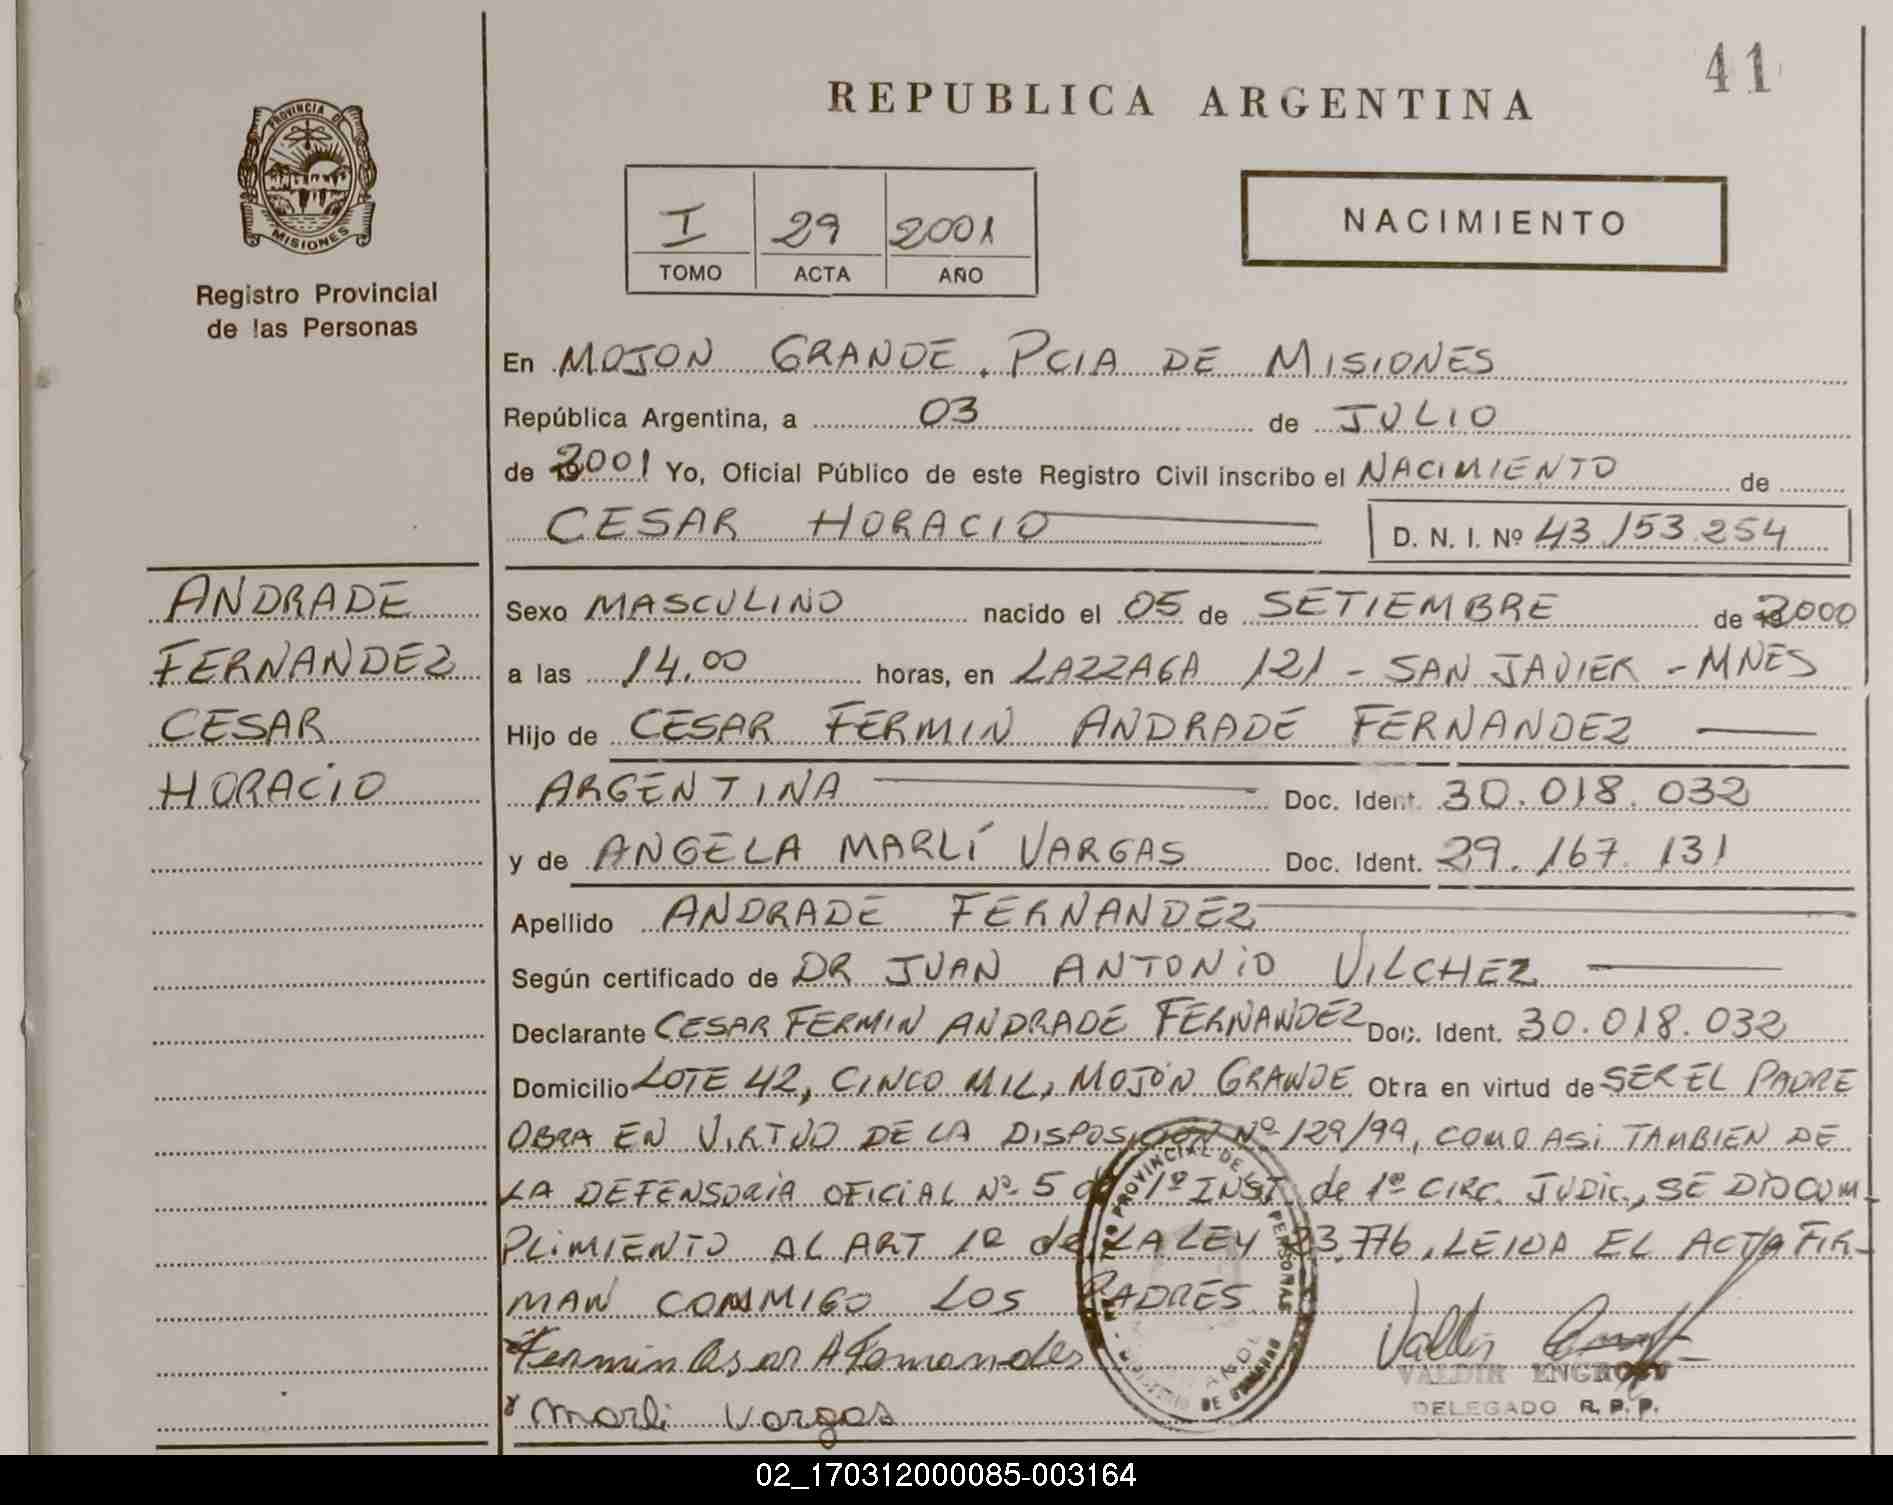 41
REPUBLICA ARGENTINA
PROVINCIA DE
MISIONES
Registro Provincial
de las Personas
I 29 2001
TOMO ACTA AÑO
NACIMIENTO
En MOJON GRANDE. PCIA DE MISIONES
República Argentina, a 03 de JULIO
de 2001 Yo, Oficial Público de este Registro Civil inscribo el NACIMIENTO de
CESAR HORACIO D. N. I. Nº 43.153.254
ANDRADE
FERNANDEZ
CESAR
HORACIO
Sexo MASCULINO nacido el 05 de SETIEMBRE de 2000
a las 14.00 horas, en LAZZAGA 121 - SAN JAVIER - MNES
Hijo de CESAR FERMIN ANDRADE FERNANDEZ
ARGENTINA Doc. Ident. 30.018.032
y de ANGELA MARLÍ VARGAS Doc. Ident. 29.167.131
Apellido ANDRADE FERNANDEZ
Según certificado de DR JUAN ANTONIO VILCHEZ
Declarante CESAR FERMIN ANDRADE FERNANDEZ Doc. Ident. 30.018.032
Domicilio LOTE 42, CINCO MIL, MOJÓN GRANDE Obra en virtud de SER EL PADRE
OBRA EN VIRTUD DE LA DISPOSICION Nº 129/99, COMO ASI TAMBIEN DE
LA DEFENSORIA OFICIAL Nº 5 de 1º INST. de 1º CIRC. JUDIC., SE DIO CUM-
PLIMIENTO AL ART 1º de LA LEY 23.776. LEIDA EL ACTA FIR-
MAN CONMIGO LOS PADRES
Fermin Cesar A Fernandes
Marli Vargas
Valdir
VALDIR ENGROFF
DELEGADO R. P. P.
PROVINCIAL DE LAS PERSONAS
02_170312000085-003164